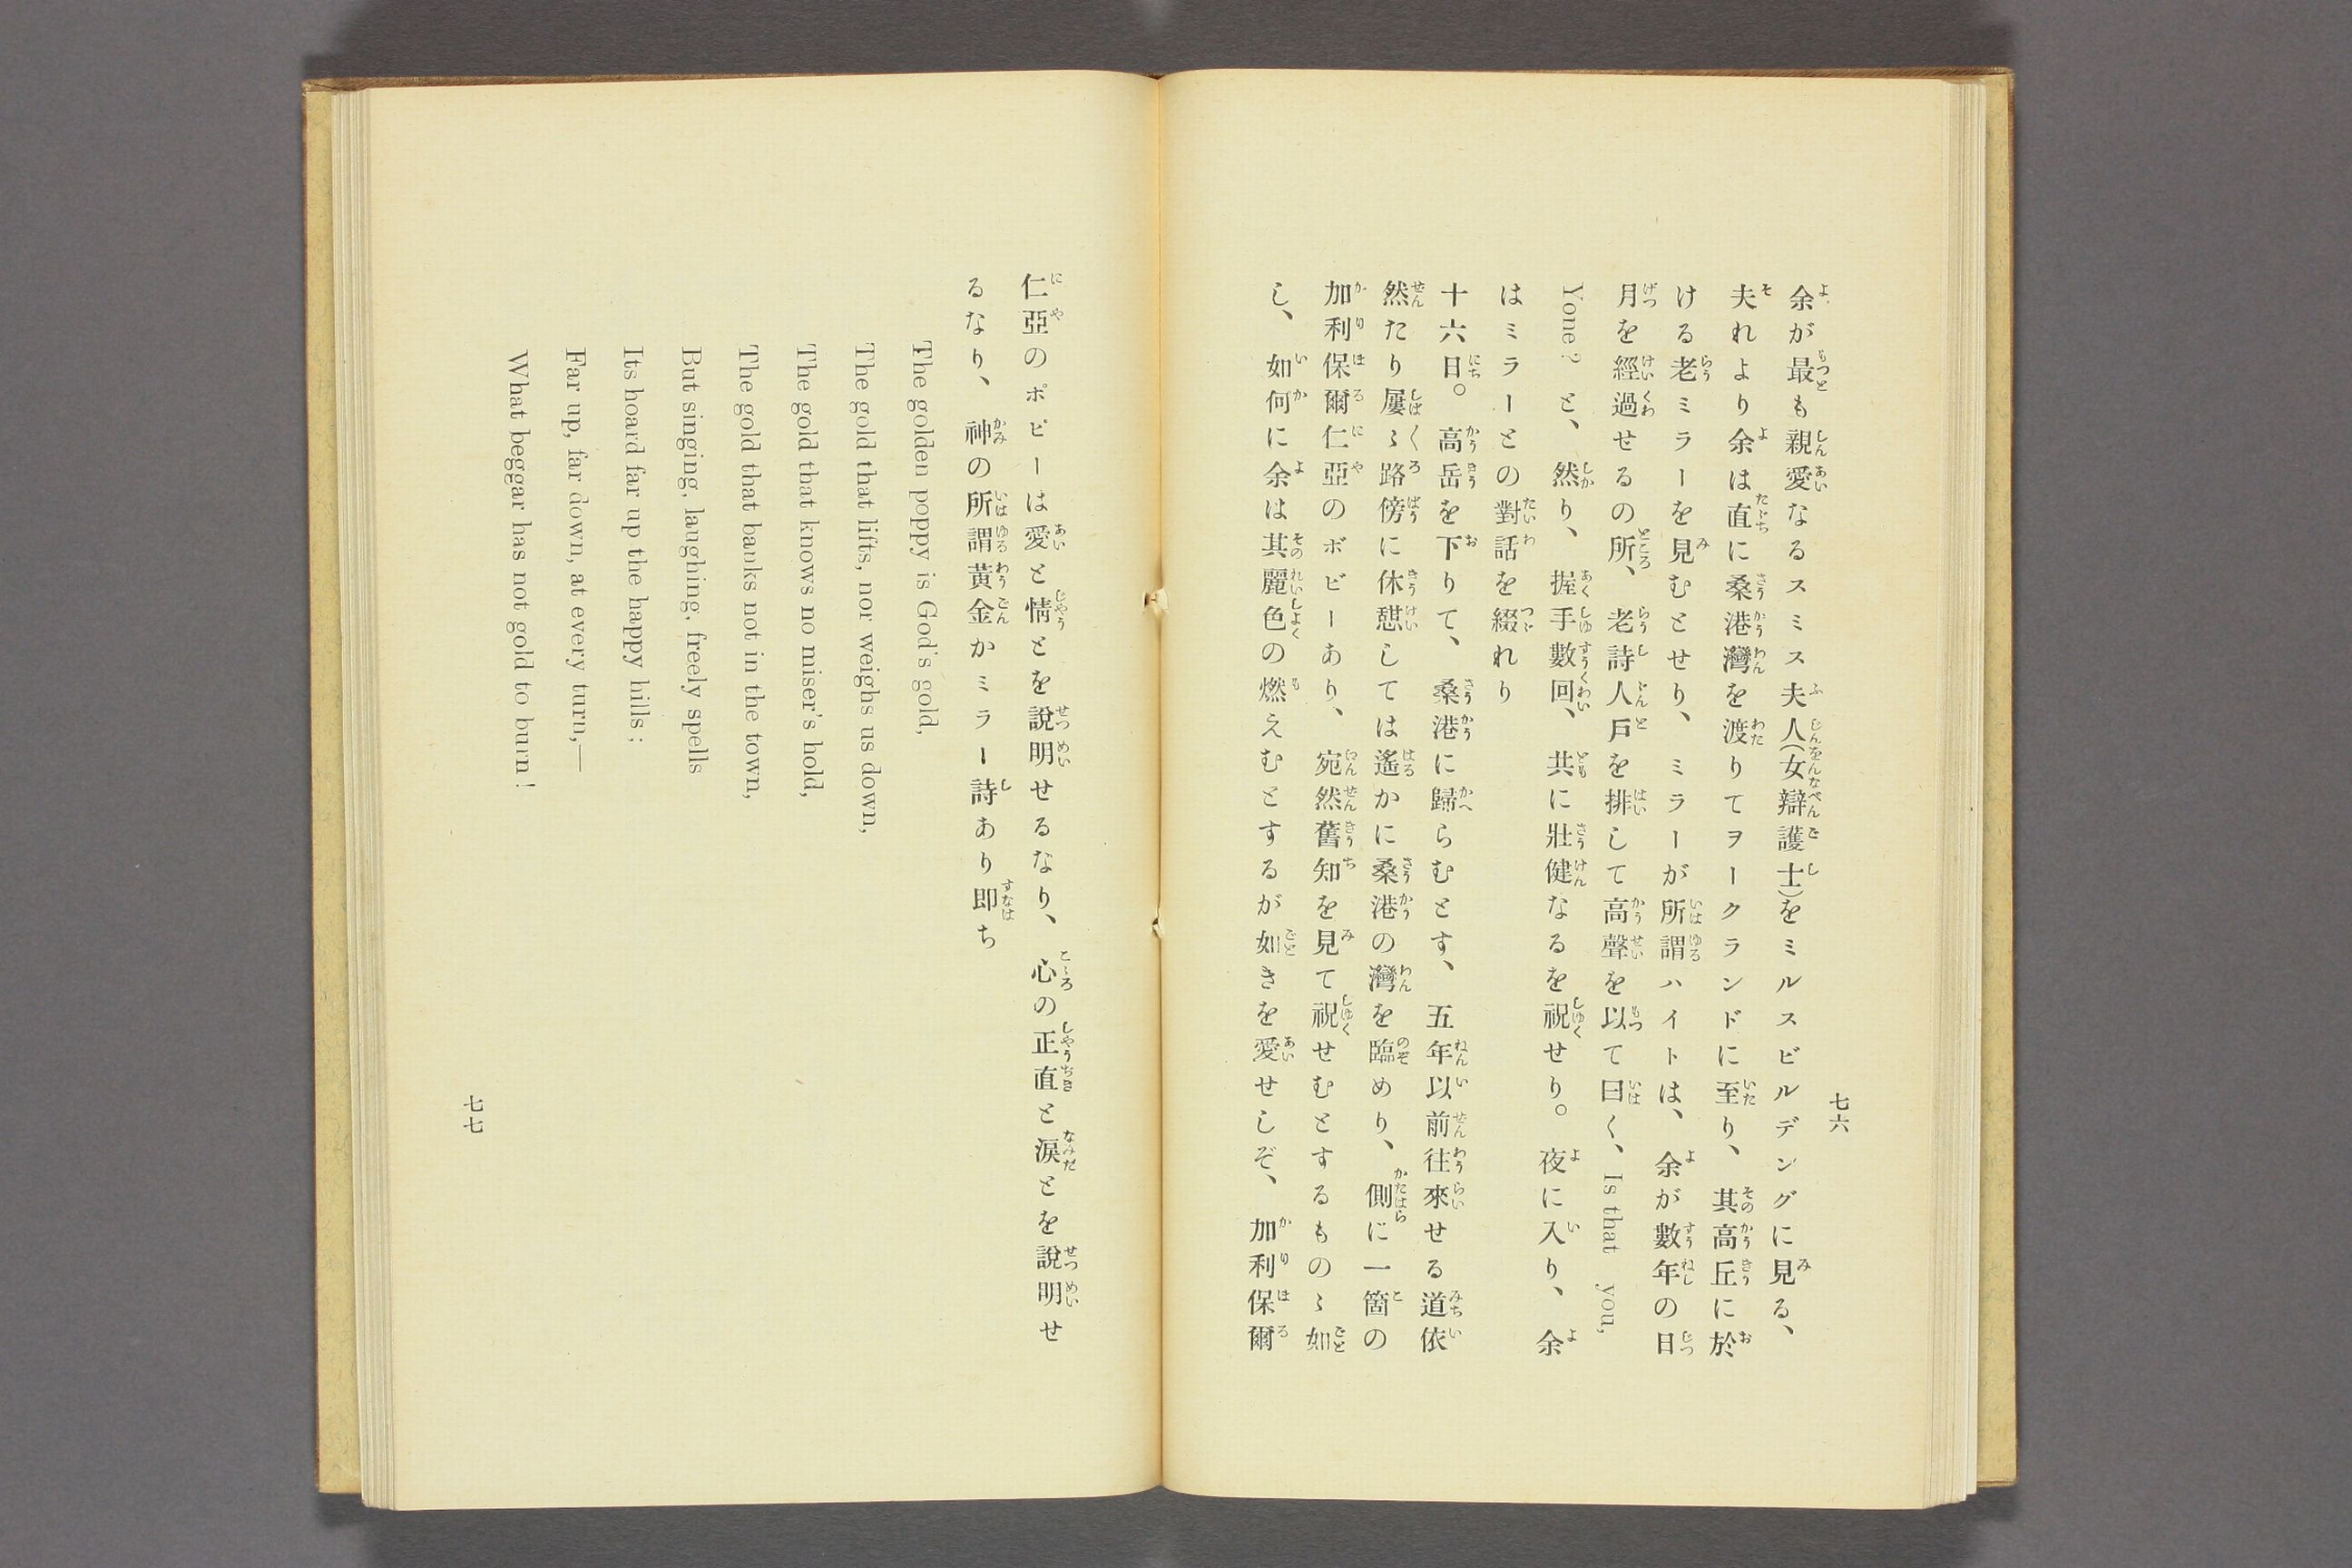 七六
余が最も親愛なるスミス夫人(女辯護士)をミルスビルデングに見る、
夫れより余は直に桑港灣を渡りてヲークランドに至り、其高丘に於
ける老ミラーを見むとせり、ミラーが所謂ハイトは、余が數年の日
月を經過せるの所、老詩人戶を排して高聲を以て曰く、Is that you,
Yone? と、然り、握手數回、共に壯健なるを祝せり。夜に入り、余
はミラーとの對話を綴れり
十六日。高岳を下りて、桑港に歸らむとす、五年以前往來せる道依
然たり屢〻路傍に休憇しては遙かに桑港の灣を臨めり、側に一箇の
加利保爾仁亞のボビーあり、宛然舊知を見て祝せむとするものゝ如
し、如何に余は其麗色の燃えむとするが如きを愛せしぞ、加利保爾
仁亞のポピーは愛と情とを說明せるなり、心の正直と淚とを說明せ
るなり、神の所謂黃金かミラー詩あり即ち
The golden poppy is God's gold,
The gold that lifts, nor weighs us down,
The gold that knows no miser's hold,
The gold that banks not in the town,
But singing, laughing, freely spells
Its hoard far up the happy hills;
Far up, far down, at every turn,—
What beggar has not gold to burn!
七七